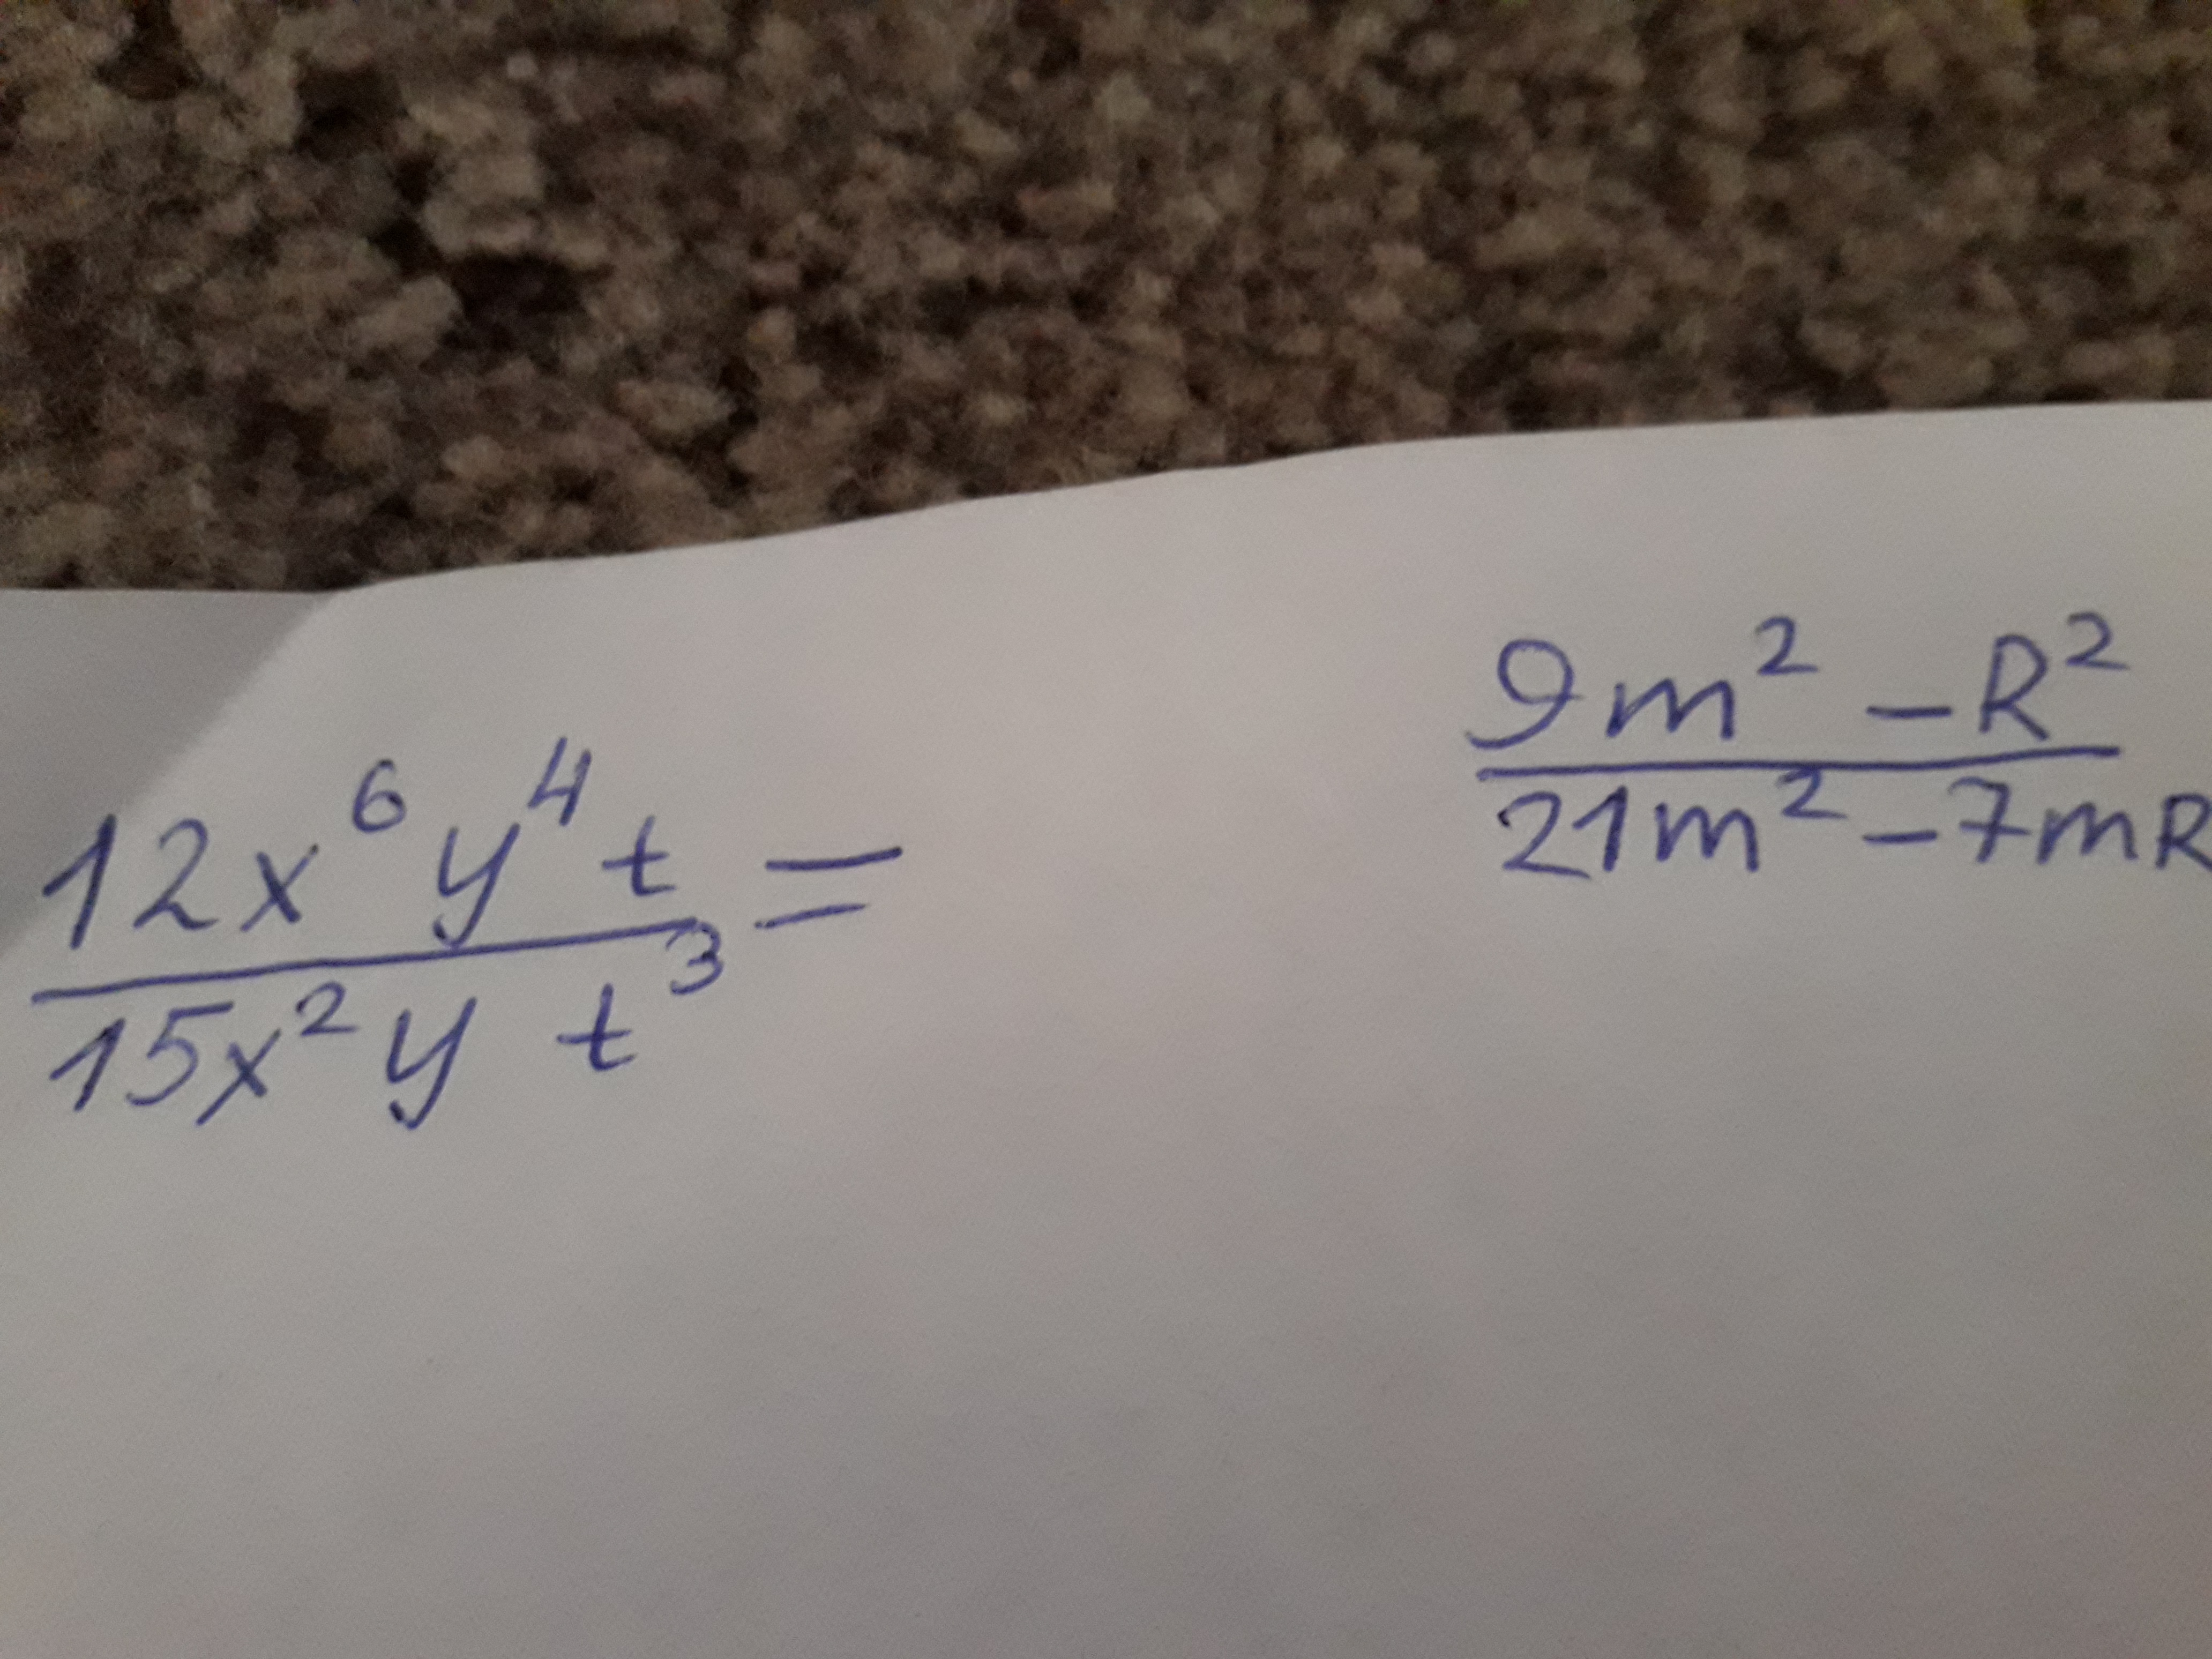 12x⁶y⁴t
15x²y t³
=
9m² – R²
21m² – 7mR